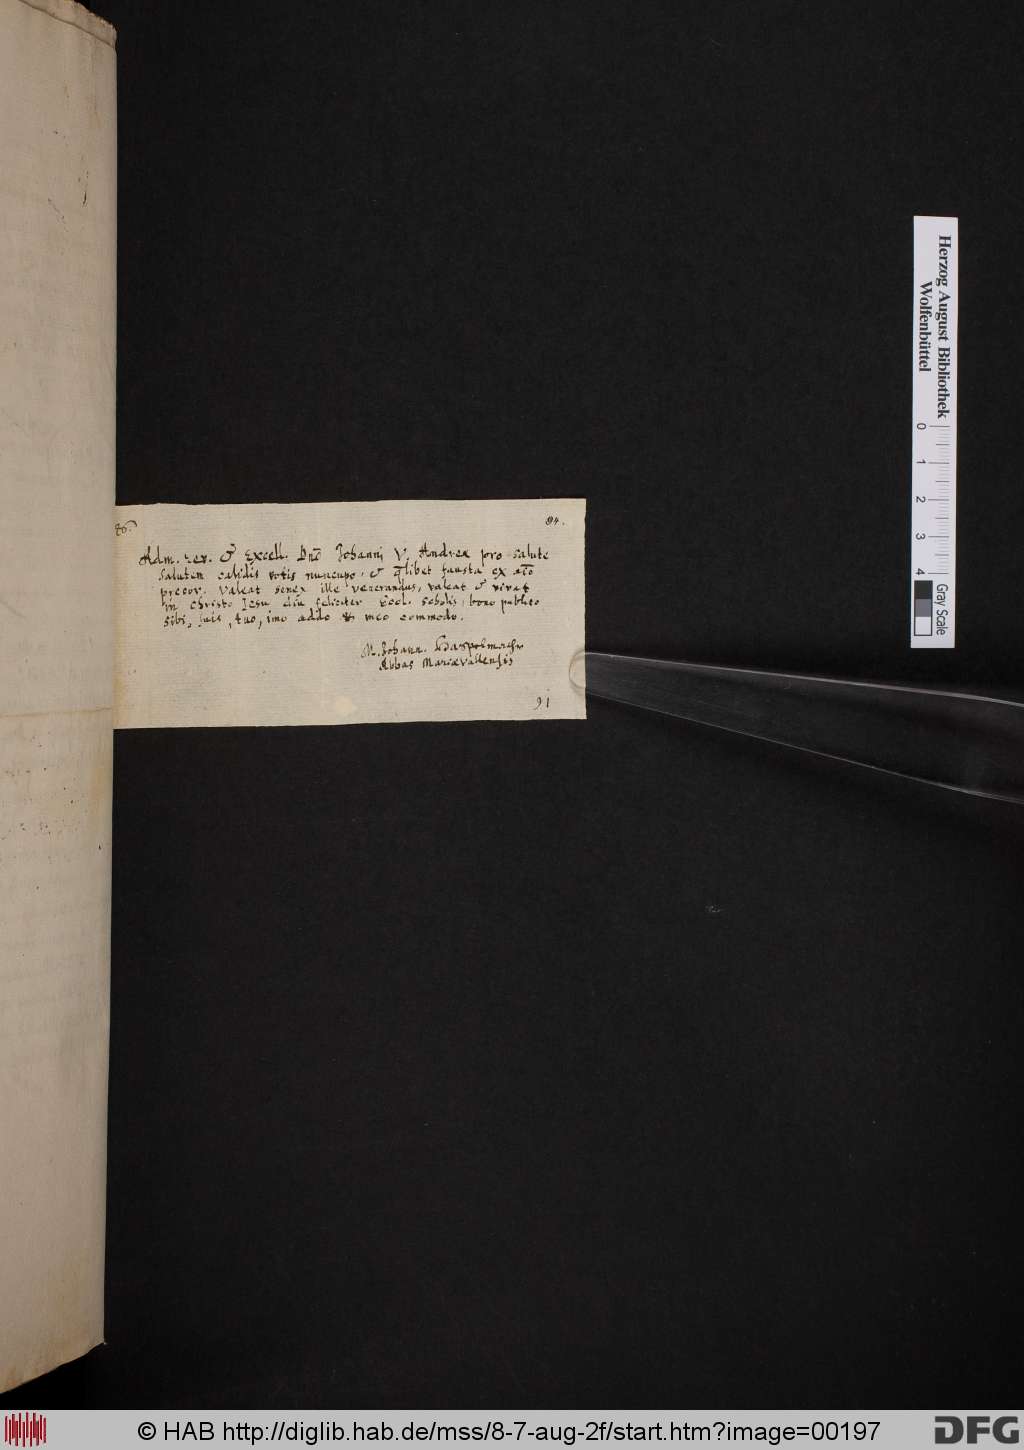 86.
84.
Adm. rev. & Excell. Dnō Johanni V. Andreæ pro salute
salutem calidis votis nuncupo, & q̄libet fausta ex aīo
precor. Valeat senex ille venerandus, valeat & vivat
in Christo Jesu diu feliciter Eccl. scholis, bono publico
sibi, suis, tuo, imo addo & meo commodo.
M. Johann.
Abbas Mariævallensis
91
Herzog August Bibliothek
Wolfenbüttel
0 1 2 3 4
Gray Scale
© HAB http://diglib.hab.de/mss/8-7-aug-2f/start.htm?image=00197
DFG